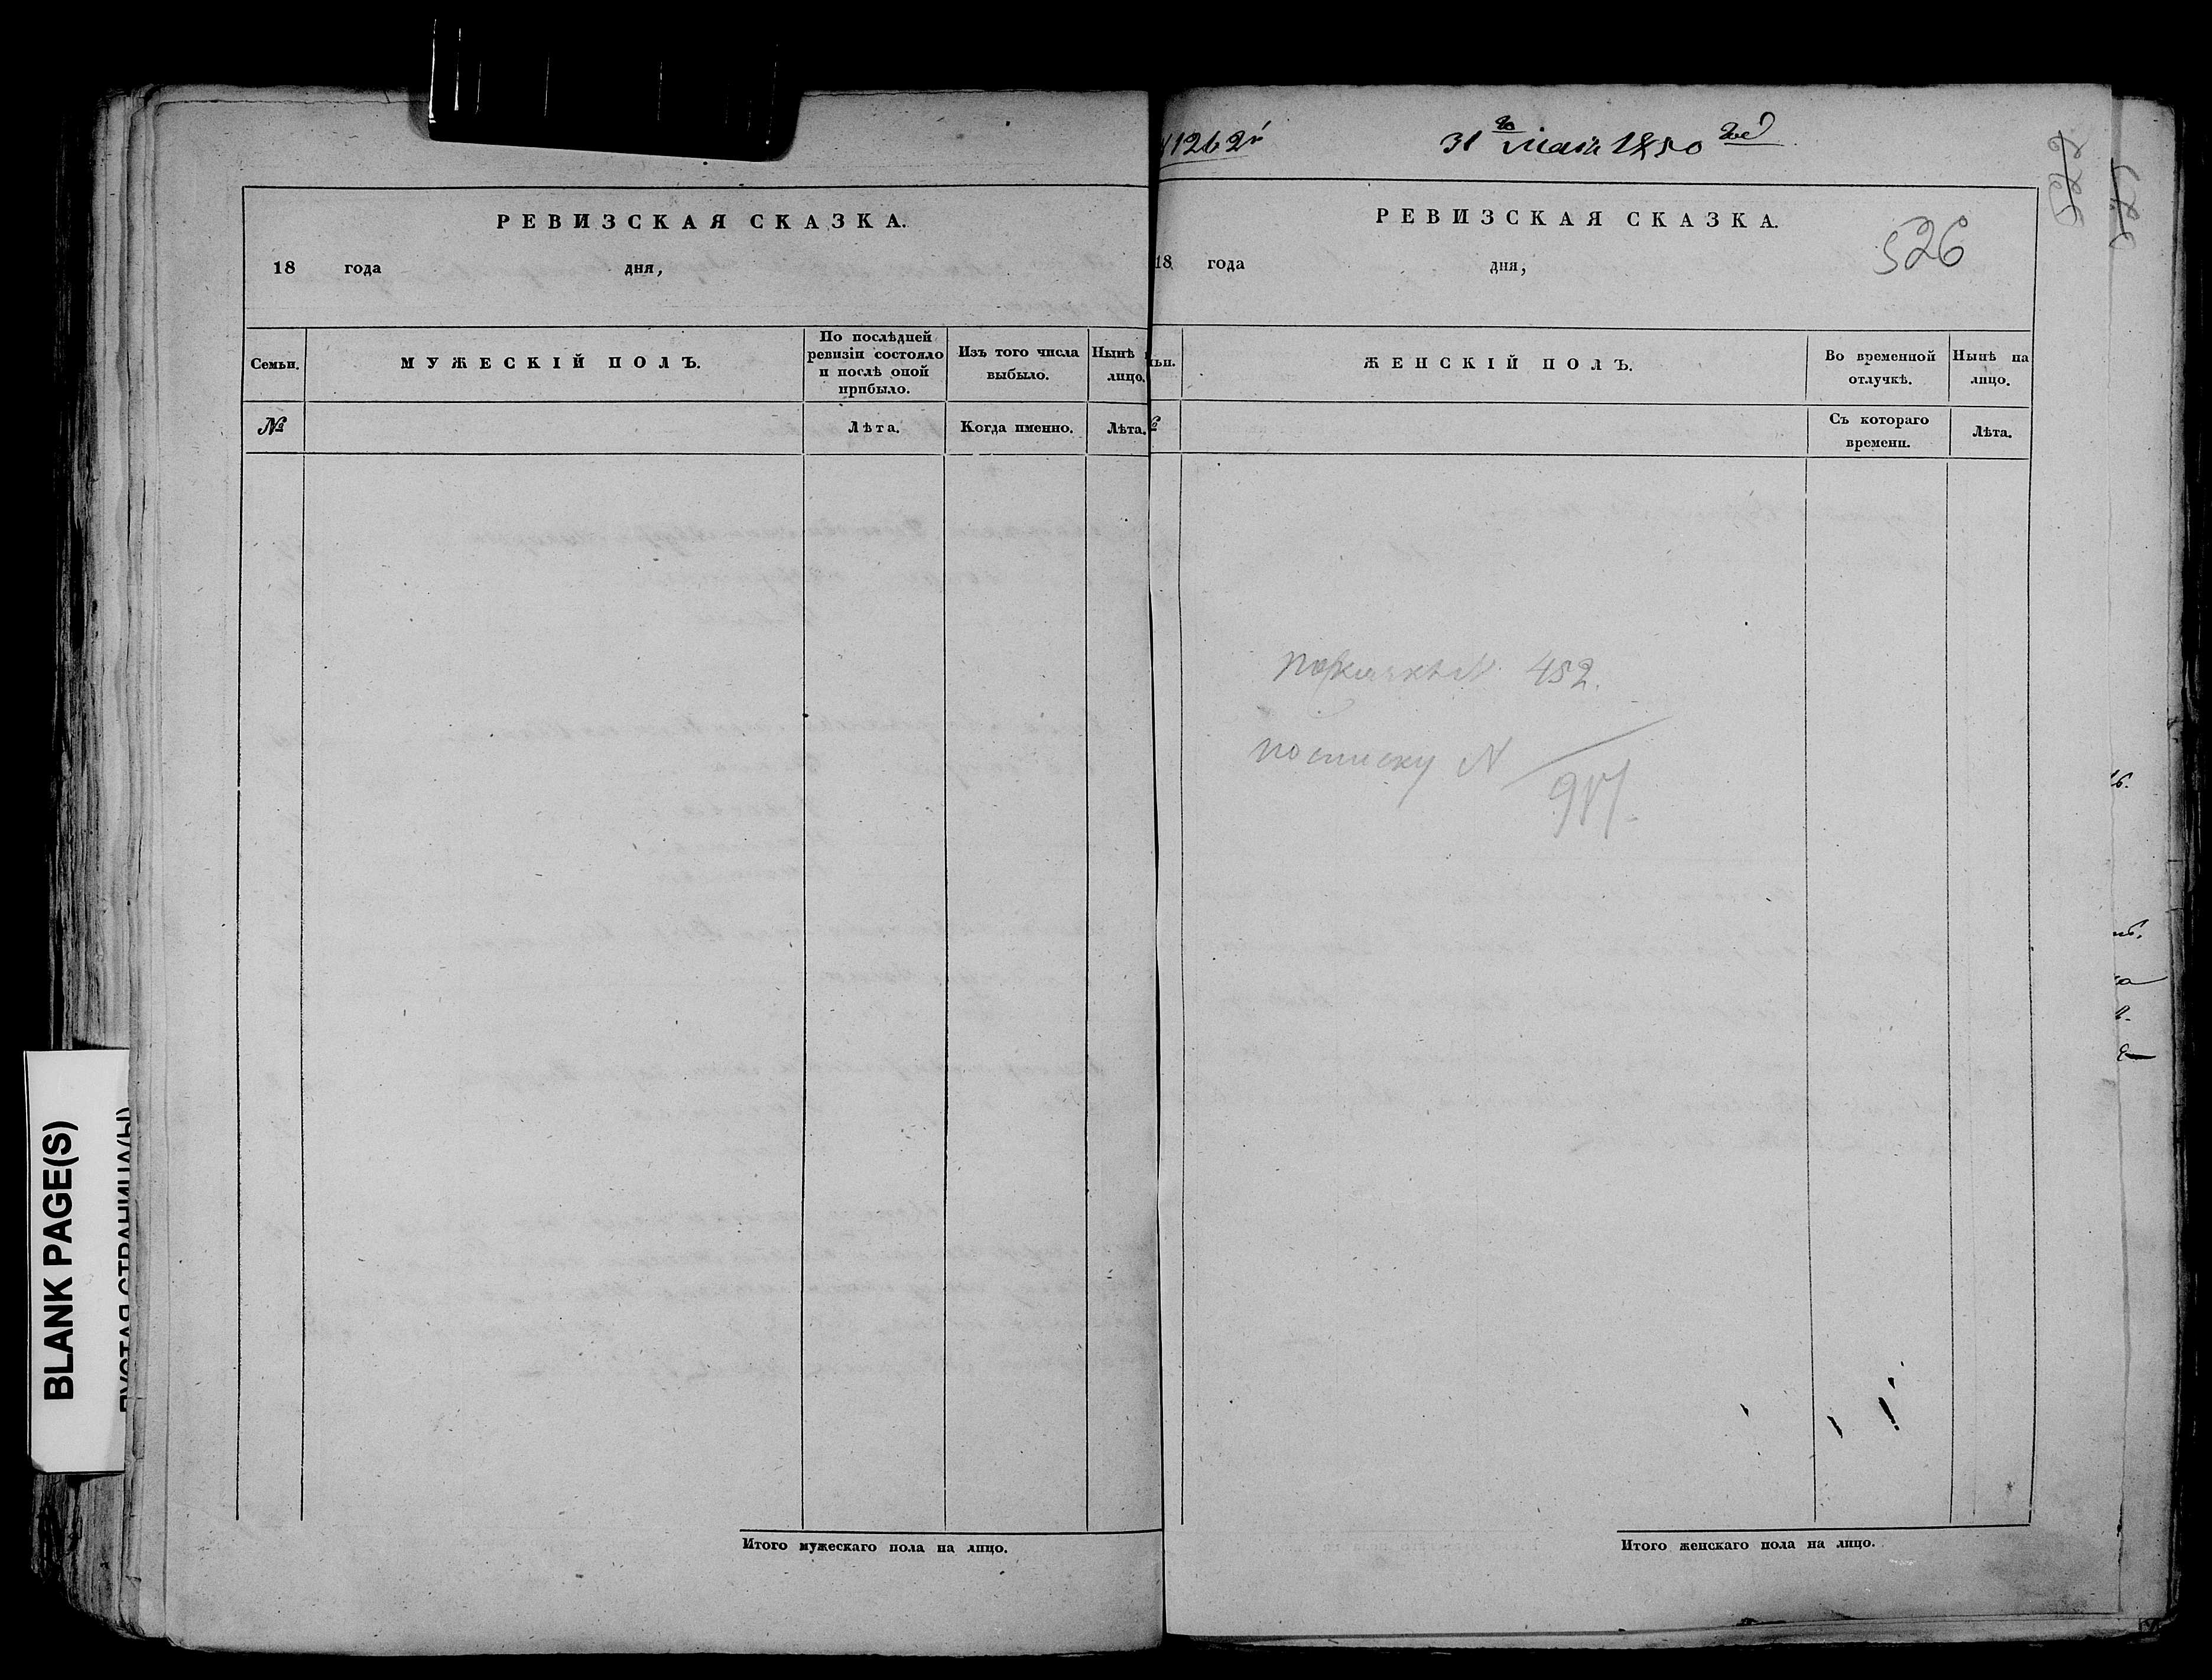 РЕВИЗСКАЯ СКАЗКА.
18 года дня,
Семьи.
МУЖЕСКІЙ ПОЛЪ.
По послѣдней
ревизіи состояло
и послѣ оной
прибыло.
Изъ того числа
выбыло.
Нынѣ
лицо.
№
Лѣта.
Когда именно.
Лѣта.
Итого мужескаго пола на лицо.
1262
31го Маія 1850 года
РЕВИЗСКАЯ СКАЗКА.
526
525
18 года дня,
ЖЕНСКІЙ ПОЛЪ.
Во временной
отлучкѣ.
Нынѣ на
лицо.
Съ котораго
времени.
Лѣта.
N 452.
по списку N
Итого женскаго пола на лицо.
BLANK PAGE(S)
ПУСТАЯ СТРАНИЦА(Ы)